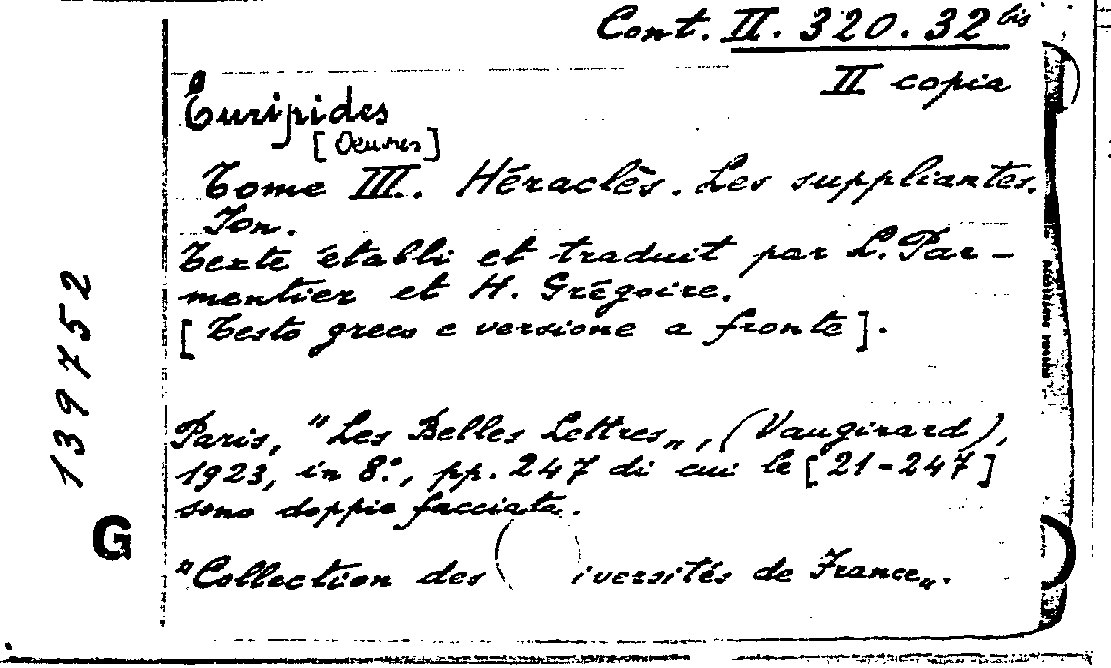 Cont. II. 320. 32 bis
II copia
Euripides
[Oeuvres]
Tome III. Héraclès. Les suppliantes.
Ion.
Texte établi et traduit par L. Par-
mentier et H. Grégoire.
[Testo greco e versione a fronte].
139752
Paris, "Les Belles Lettres„, (Vaugirard),
1923, in 8º., pp. 247 di cui le [21-247]
sono doppie facciate.
G
"Collection des iversités de France„.